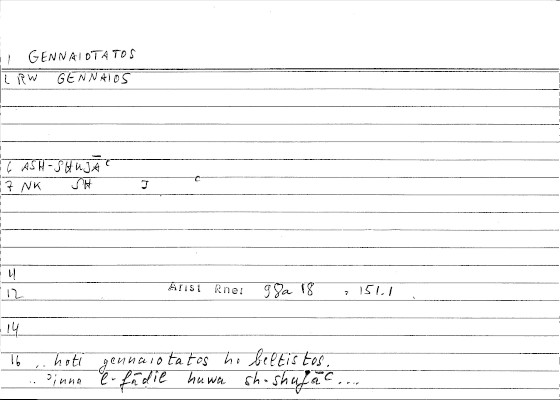 1 GENNAIOTATOS
2 RW GENNAIOS
6 ASH-SHUJĀʿ
7 NK SH J ʿ
11
12 Arist Rhet 98a18 , 151.1
14
16 .. hoti gennaiotatos ho beltistos.
.. ʾinna l-fāḍil huwa sh-shujāʿ...